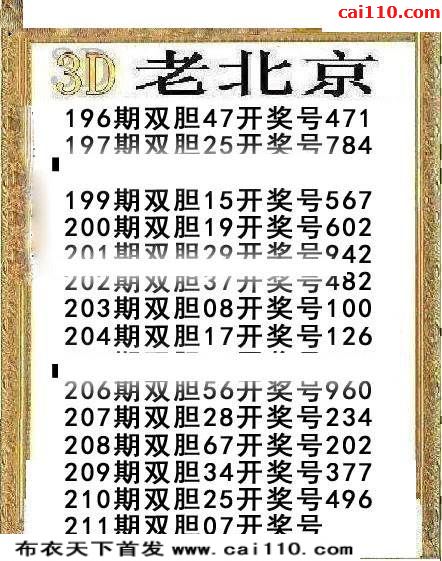 cai110.com
3D 老北京
196期双胆47开奖号471
197期双胆25开奖号784
199期双胆15开奖号567
200期双胆19开奖号602
201期双胆29开奖号942
202期双胆37开奖号482
203期双胆08开奖号100
204期双胆17开奖号126
206期双胆56开奖号960
207期双胆28开奖号234
208期双胆67开奖号202
209期双胆34开奖号377
210期双胆25开奖号496
211期双胆07开奖号
布衣天下首发 www.cai110.com